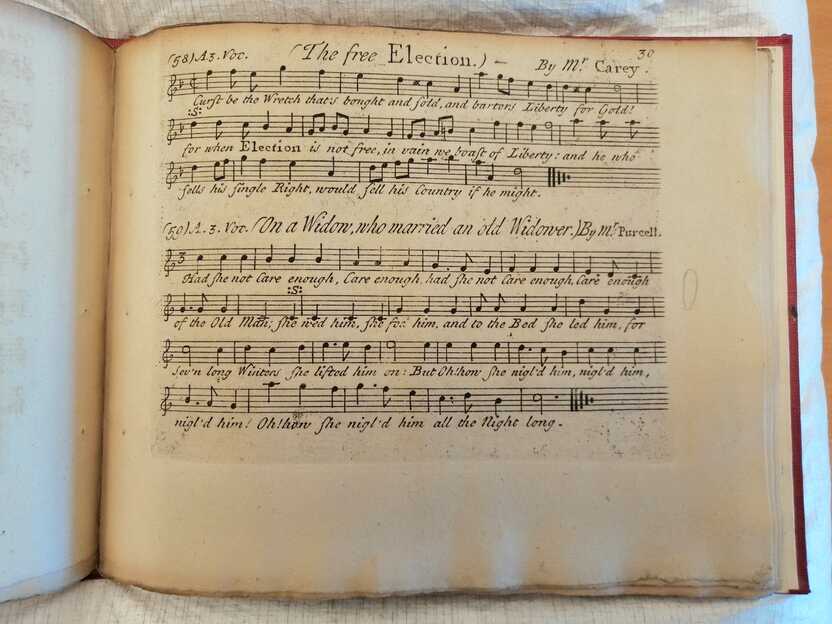 (58) A. 3. Voc. (The free Election.) — By Mr. Carey. 30
Curst be the Wretch that's bought and sold, and barters Liberty for Gold!
:S:
for when Election is not free, in vain we boast of Liberty: and he who
sells his single Right, would sell his Country if he might.
(59) A. 3. Voc. (On a Widow, who married an old Widower.) By Mr. Purcell.
3
Had she not Care enough, Care enough, had she not Care enough, Care enough
:S:
of the Old Man; she wed him, she fed him, and to the Bed she led him, for
sev'n long Winters she lifted him on: But Oh! how she nigl'd him, nigl'd him,
nigl'd him! Oh! how she nigl'd him all the Night long.